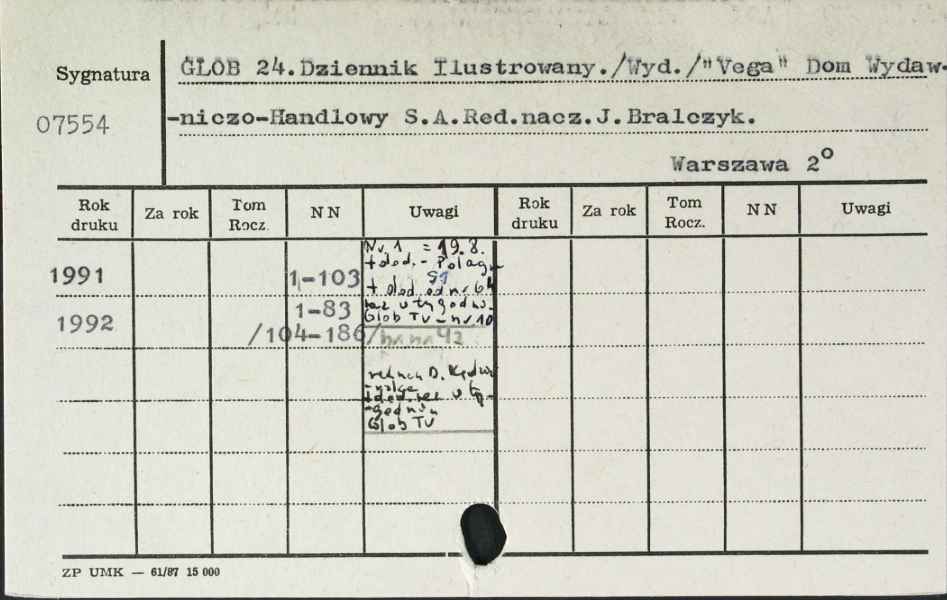 Sygnatura
07554
GLOB 24.Dziennik Ilustrowany./Wyd./"Vega" Dom Wydaw-
-niczo-Handlowy S.A.Red.nacz.J.Bralczyk.
Warszawa 2°
Rok druku Za rok Tom Rocz. NN Uwagi Rok druku Za rok Tom Rocz. NN Uwagi
Nr 1 = 19.8.
+dod.-
1991 1-103
+ dod od nr 64
raz w tygodniu
1992 1-83
Glob TV - nr 10
/104-186/
rednacz D.
+dod. raz w ty-
-godniu
Glob TV
ZP UMK — 61/87 15 000